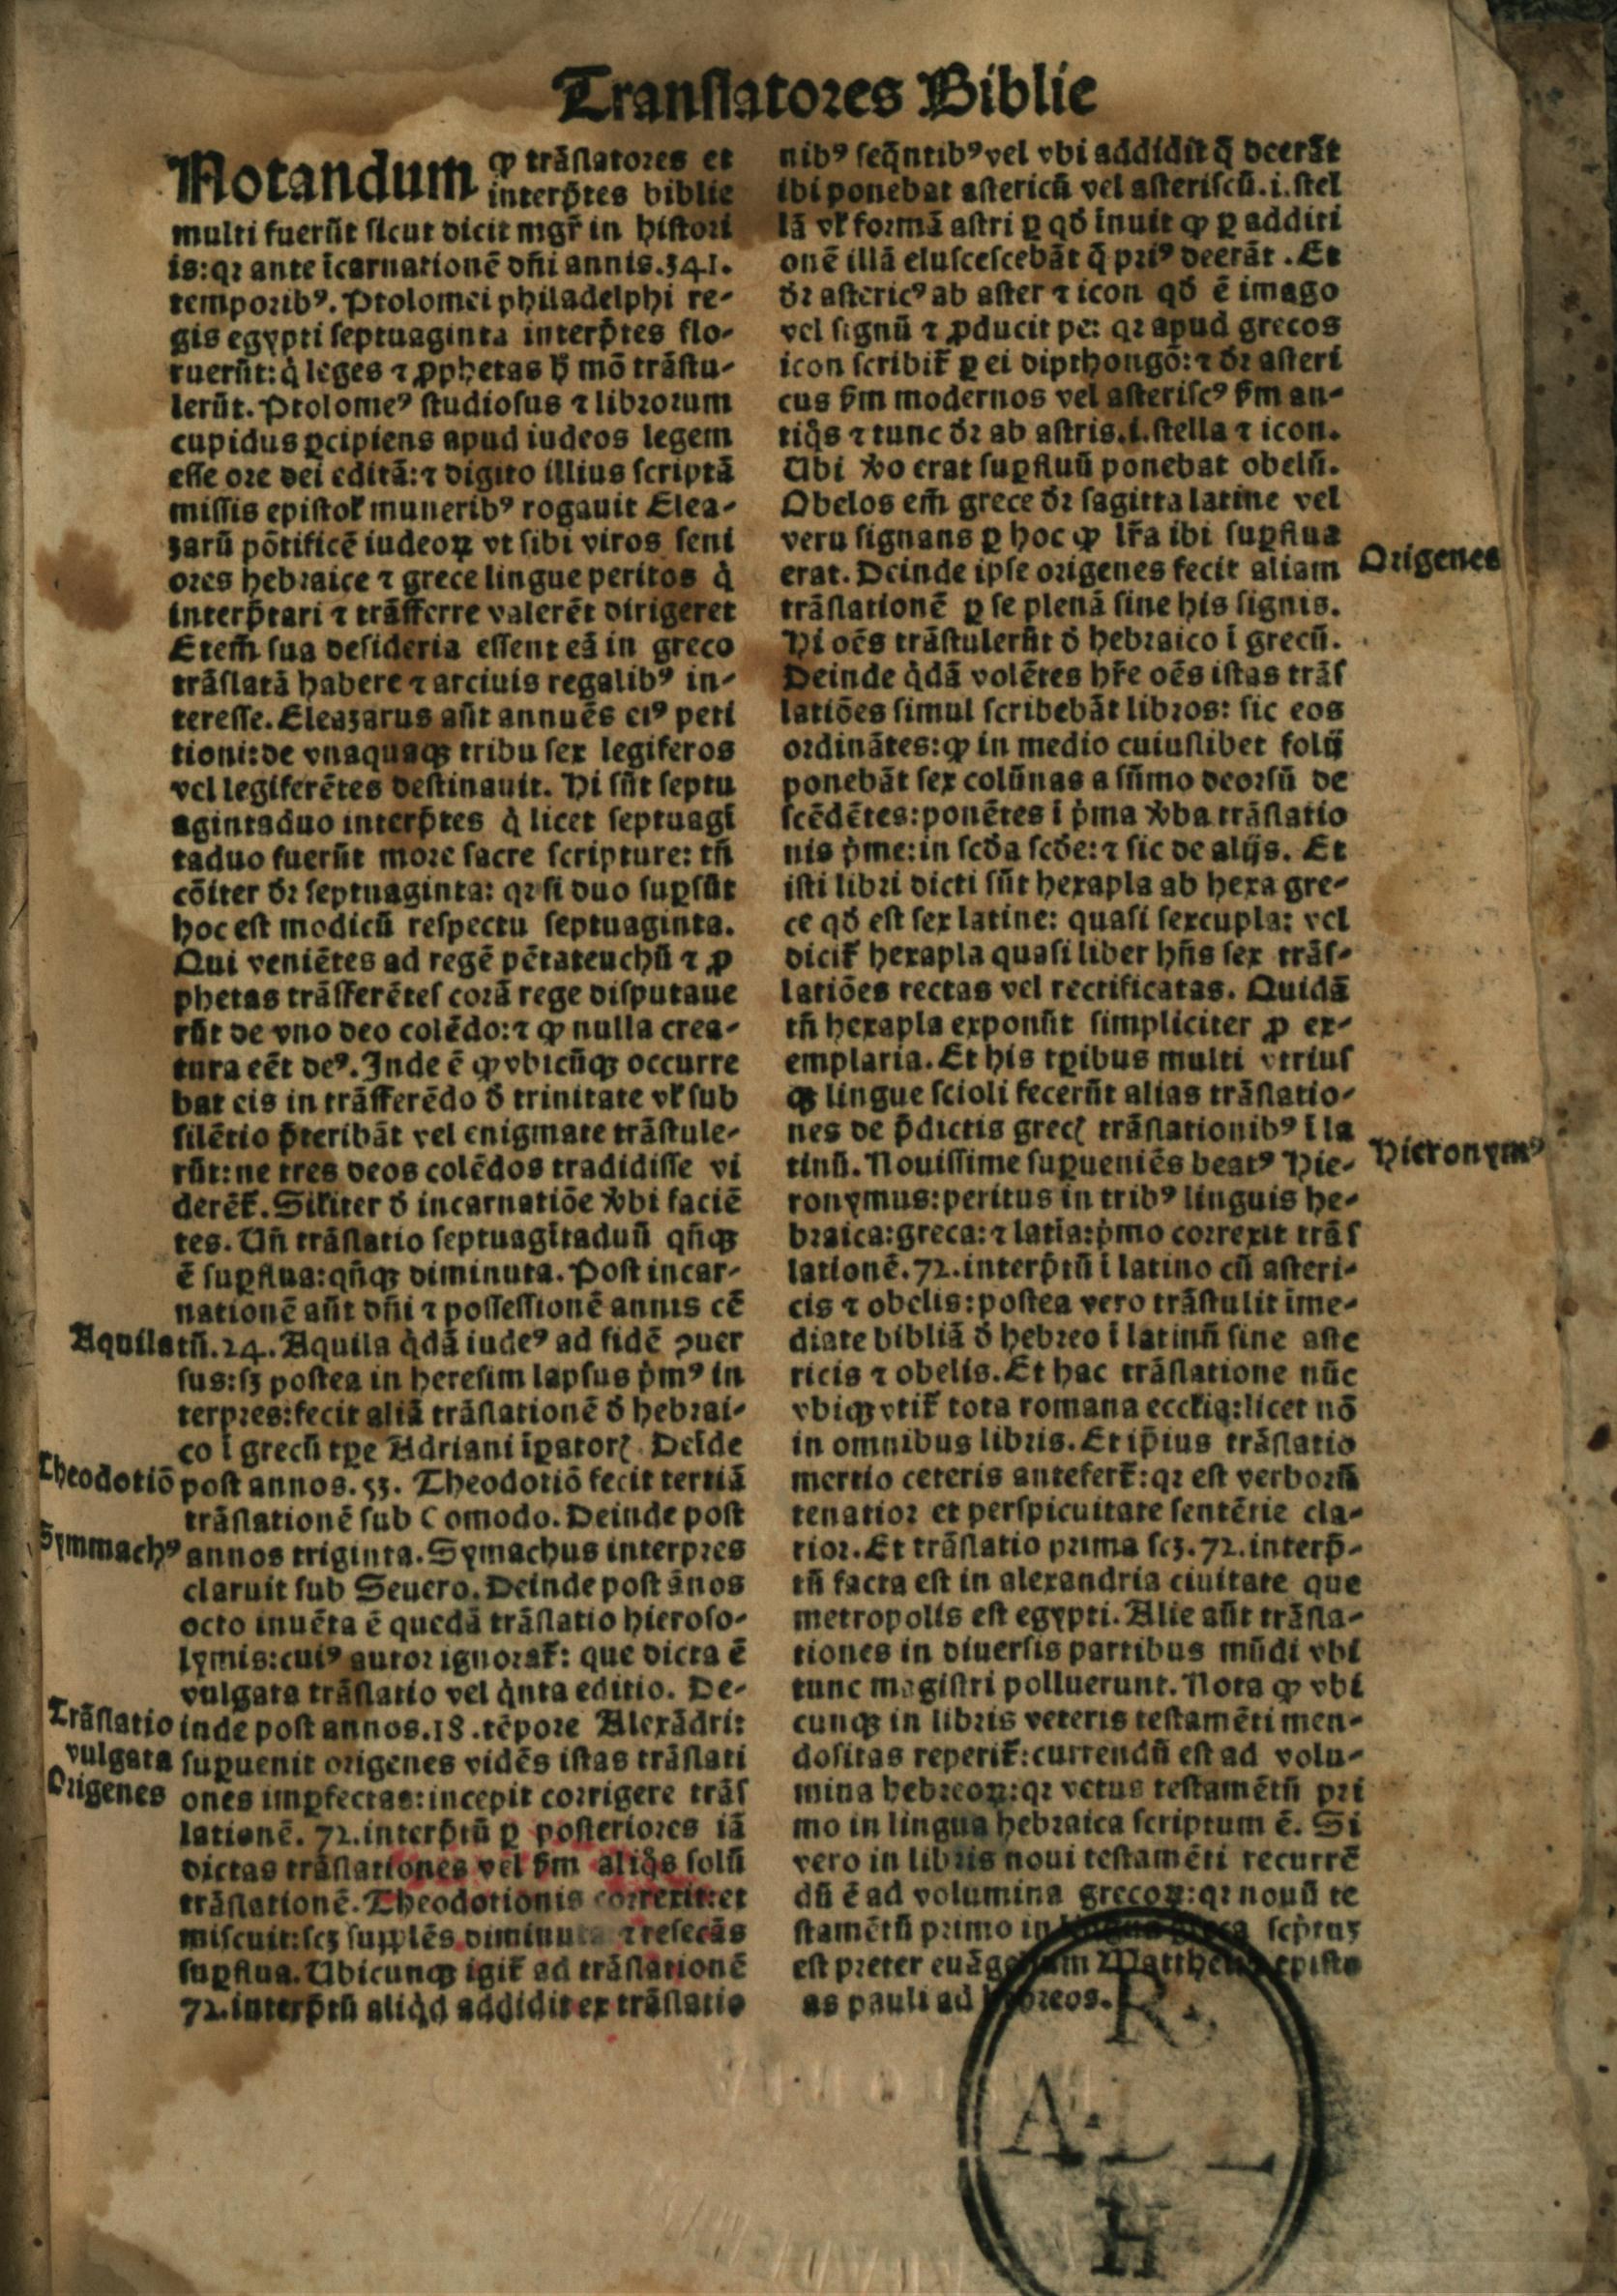 Tranſlatores Biblie
Notandum ꝙ trãſlatores et
interp̃tes biblie
multi fuerũt ſicut dicit mgr̃ in hiſtori
is: qꝛ ante ĩcarnationẽ dñi annis .341.
temporibꝰ. Ptolomei philadelphi re-
gis egypti ſeptuaginta interp̃tes flo-
ruerũt: q̇ leges ⁊ ꝓphetas h̃ mõ trãſtu-
lerũt. Ptolomeꝰ ſtudioſus ⁊ librorum
cupidus ꝑcipiens apud iudeos legem
eſſe ore dei editã: ⁊ digito illius ſcriptã
miſſis epiſtol̃ muneribꝰ rogauit Elea-
zarũ põtificẽ iudeoꝝ vt ſibi viros ſeni
ores hebraice ⁊ grece lingue peritos q̇
interp̃tari ⁊ trãſferre valerẽt dirigeret
Etem̃ ſua deſideria eſſent eã in greco
trãſlatã habere ⁊ arciuis regalibꝰ in-
tereſſe. Eleazarus aũt annuẽs eiꝰ peti
tioni: de vnaquaqꝫ tribu ſex legiferos
vel legiferẽtes deſtinauit. Hi ſũt ſeptu
agintaduo interp̃tes q̇ licet ſeptuagĩ
taduo fuerũt more ſacre ſcripture: tñ
cõiter dꝛ̃ ſeptuaginta: qꝛ ſi duo ſuꝑſũt
hoc eſt modicũ reſpectu ſeptuaginta.
Qui veniẽtes ad regẽ pẽtateuchũ ⁊ ꝓ
phetas trãſferẽteſ corã rege diſputaue
rũt de vno deo colẽdo: ⁊ ꝙ nulla crea-
tura eẽt deꝰ. Inde ẽ ꝙ vbicũqꝫ occurre
bat eis in trãſferẽdo d̃ trinitate vl̃ ſub
ſilẽtio p̃teribãt vel enigmate trãſtule-
rũt: ne tres deos colẽdos tradidiſſe vi
derẽt̃. Sil̃iter d̃ incarnatiõe v̾bi faciẽ
tes. Uñ trãſlatio ſeptuagĩtaduũ qñqꝫ
ẽ ſuꝑflua: qñqꝫ diminuta. Poſt incar-
nationẽ aũt dñi ⁊ poſſeſſionẽ annis cẽ
Aquila tũ. 24. Aquila q̇dã iudeꝰ ad fidẽ ꝯuer
ſus: ſꝫ poſtea in hereſim lapſus p̾mꝰ in
terpres: fecit aliã trãſlationẽ d̃ hebrai-
co ĩ grecũ tꝑe Adriani ĩꝑatorꝭ Deĩde
Theodotiõ poſt annos. 53. Theodotiõ fecit tertiã
trãſlationẽ ſub Comodo. Deinde poſt
Symmachꝰ annos triginta. Symachus interpres
claruit ſub Seuero. Deinde poſt ãnos
octo inuẽta ẽ quedã trãſlatio hieroſo-
lymis: cuiꝰ autor ignorat̃: que dicta ẽ
vulgata trãſlatio vel q̇nta editio. De-
Trãſlatio inde poſt annos. 18. tẽpore Alexãdri:
vulgata ſuꝑuenit origenes vidẽs iſtas trãſlati
Origenes ones imꝑfectas: incepit corrigere trãſ
lationẽ. 72. interp̃tũ ꝑ poſteriores iã
dictas trãſlationes vel ẜm aliq̇s ſolũ
trãſlationẽ. Theodotionis correxit: et
miſcuit: ſcꝫ ſupplẽs diminuta ⁊ reſecãs
ſuꝑflua. Ubicunqꝫ igit̃ ad trãſlationẽ
72. interp̃tũ aliq̇d addidit ex trãſlatio
nibꝰ ſeq̃ntibꝰ vel vbi addidit q̃ deerãt
ibi ponebat aſtericũ vel aſteriſcũ .i. ſtel
lã vl̃ formã aſtri ꝑ qd̃ ĩnuit ꝙ ꝑ additi
onẽ illã eluſceſcebãt q̃ priꝰ deerãt. Et
dꝛ̃ aſtericꝰ ab aſter ⁊ icon qd̃ ẽ imago
vel ſignũ ⁊ ꝓducit pe: qꝛ apud grecos
icon ſcribit̃ ꝑ ei dipthongõ: ⁊ dꝛ̃ aſteri
cus ẜm modernos vel aſteriſcꝰ ẜm an-
tiq̇s ⁊ tunc dꝛ̃ ab aſtris .i. ſtella ⁊ icon.
Ubi v̾o erat ſuꝑfluũ ponebat obelũ.
Obelos em̃ grece dꝛ̃ ſagitta latine vel
veru ſignans ꝑ hoc ꝙ lr̃a ibi ſuꝑflua
erat. Deinde ipſe origenes fecit aliam Origenes
trãſlationẽ ꝑ ſe plenã ſine his ſignis.
Hi oẽs trãſtulerũt d̃ hebraico ĩ grecũ.
Deinde q̇dã volẽtes hr̃e oẽs iſtas trãſ
latiões ſimul ſcribebãt libros: ſic eos
ordinãtes: ꝙ in medio cuiuſlibet folij
ponebãt ſex colũnas a ſũmo deorſũ de
ſcẽdẽtes: ponẽtes ĩ p̾ma v̾ba trãſlatio
nis p̾me: in ſcd̃a ſcd̃e: ⁊ ſic de alijs. Et
iſti libri dicti ſũt hexapla ab hexa gre-
ce qd̃ eſt ſex latine: quaſi ſexcupla: vel
dicit̃ hexapla quaſi liber hñs ſex trãſ-
latiões rectas vel rectificatas. Quidã
tñ hexapla exponũt ſimpliciter ꝓ ex-
emplaria. Et his tꝑibus multi vtriuſ
qꝫ lingue ſcioli fecerũt alias trãſlatio-
nes de p̃dictis grecꝭ trãſlationibꝰ ĩ la
tinũ. Nouiſſime ſuꝑueniẽs beatꝰ Hie- Hieronymꝰ
ronymus: peritus in tribꝰ linguis he-
braica: greca: ⁊ latĩa: p̾mo correxit trãſ
lationẽ. 72. interp̃tũ ĩ latino cũ aſteri-
cis ⁊ obelis: poſtea vero trãſtulit ĩme-
diate bibliã d̃ hebreo ĩ latinũ ſine aſte
ricis ⁊ obelis. Et hac trãſlatione nũc
vbiqꝫ vtit̃ tota romana eccl̃ia: licet nõ
in omnibus libris. Et ip̃ius trãſlatio
mertio ceteris antefert̃: qꝛ eſt verborũ
tenatior et perſpicuitate ſentẽtie cla-
rior. Et trãſlatio prima ſcꝫ. 72. interp̃-
tũ facta eſt in alexandria ciuitate que
metropolis eſt egypti. Alie aũt trãſla-
tiones in diuerſis partibus mũdi vbi
tunc magiſtri polluerunt. Nota ꝙ vbi
cunqꝫ in libris veteris teſtamẽti men-
doſitas reperit̃: currendũ eſt ad volu-
mina hebreoꝝ: qꝛ vetus teſtamẽtũ pri
mo in lingua hebraica ſcriptum ẽ. Si
vero in libris noui teſtamẽti recurrẽ
dũ ẽ ad volumina grecoꝝ: qꝛ nouũ te
ſtamẽtũ primo in lingua greca ſcp̾tuꝫ
eſt preter euãgelium Matthei ⁊ epiſto
as pauli ad hebreos.
R.
A. L
H